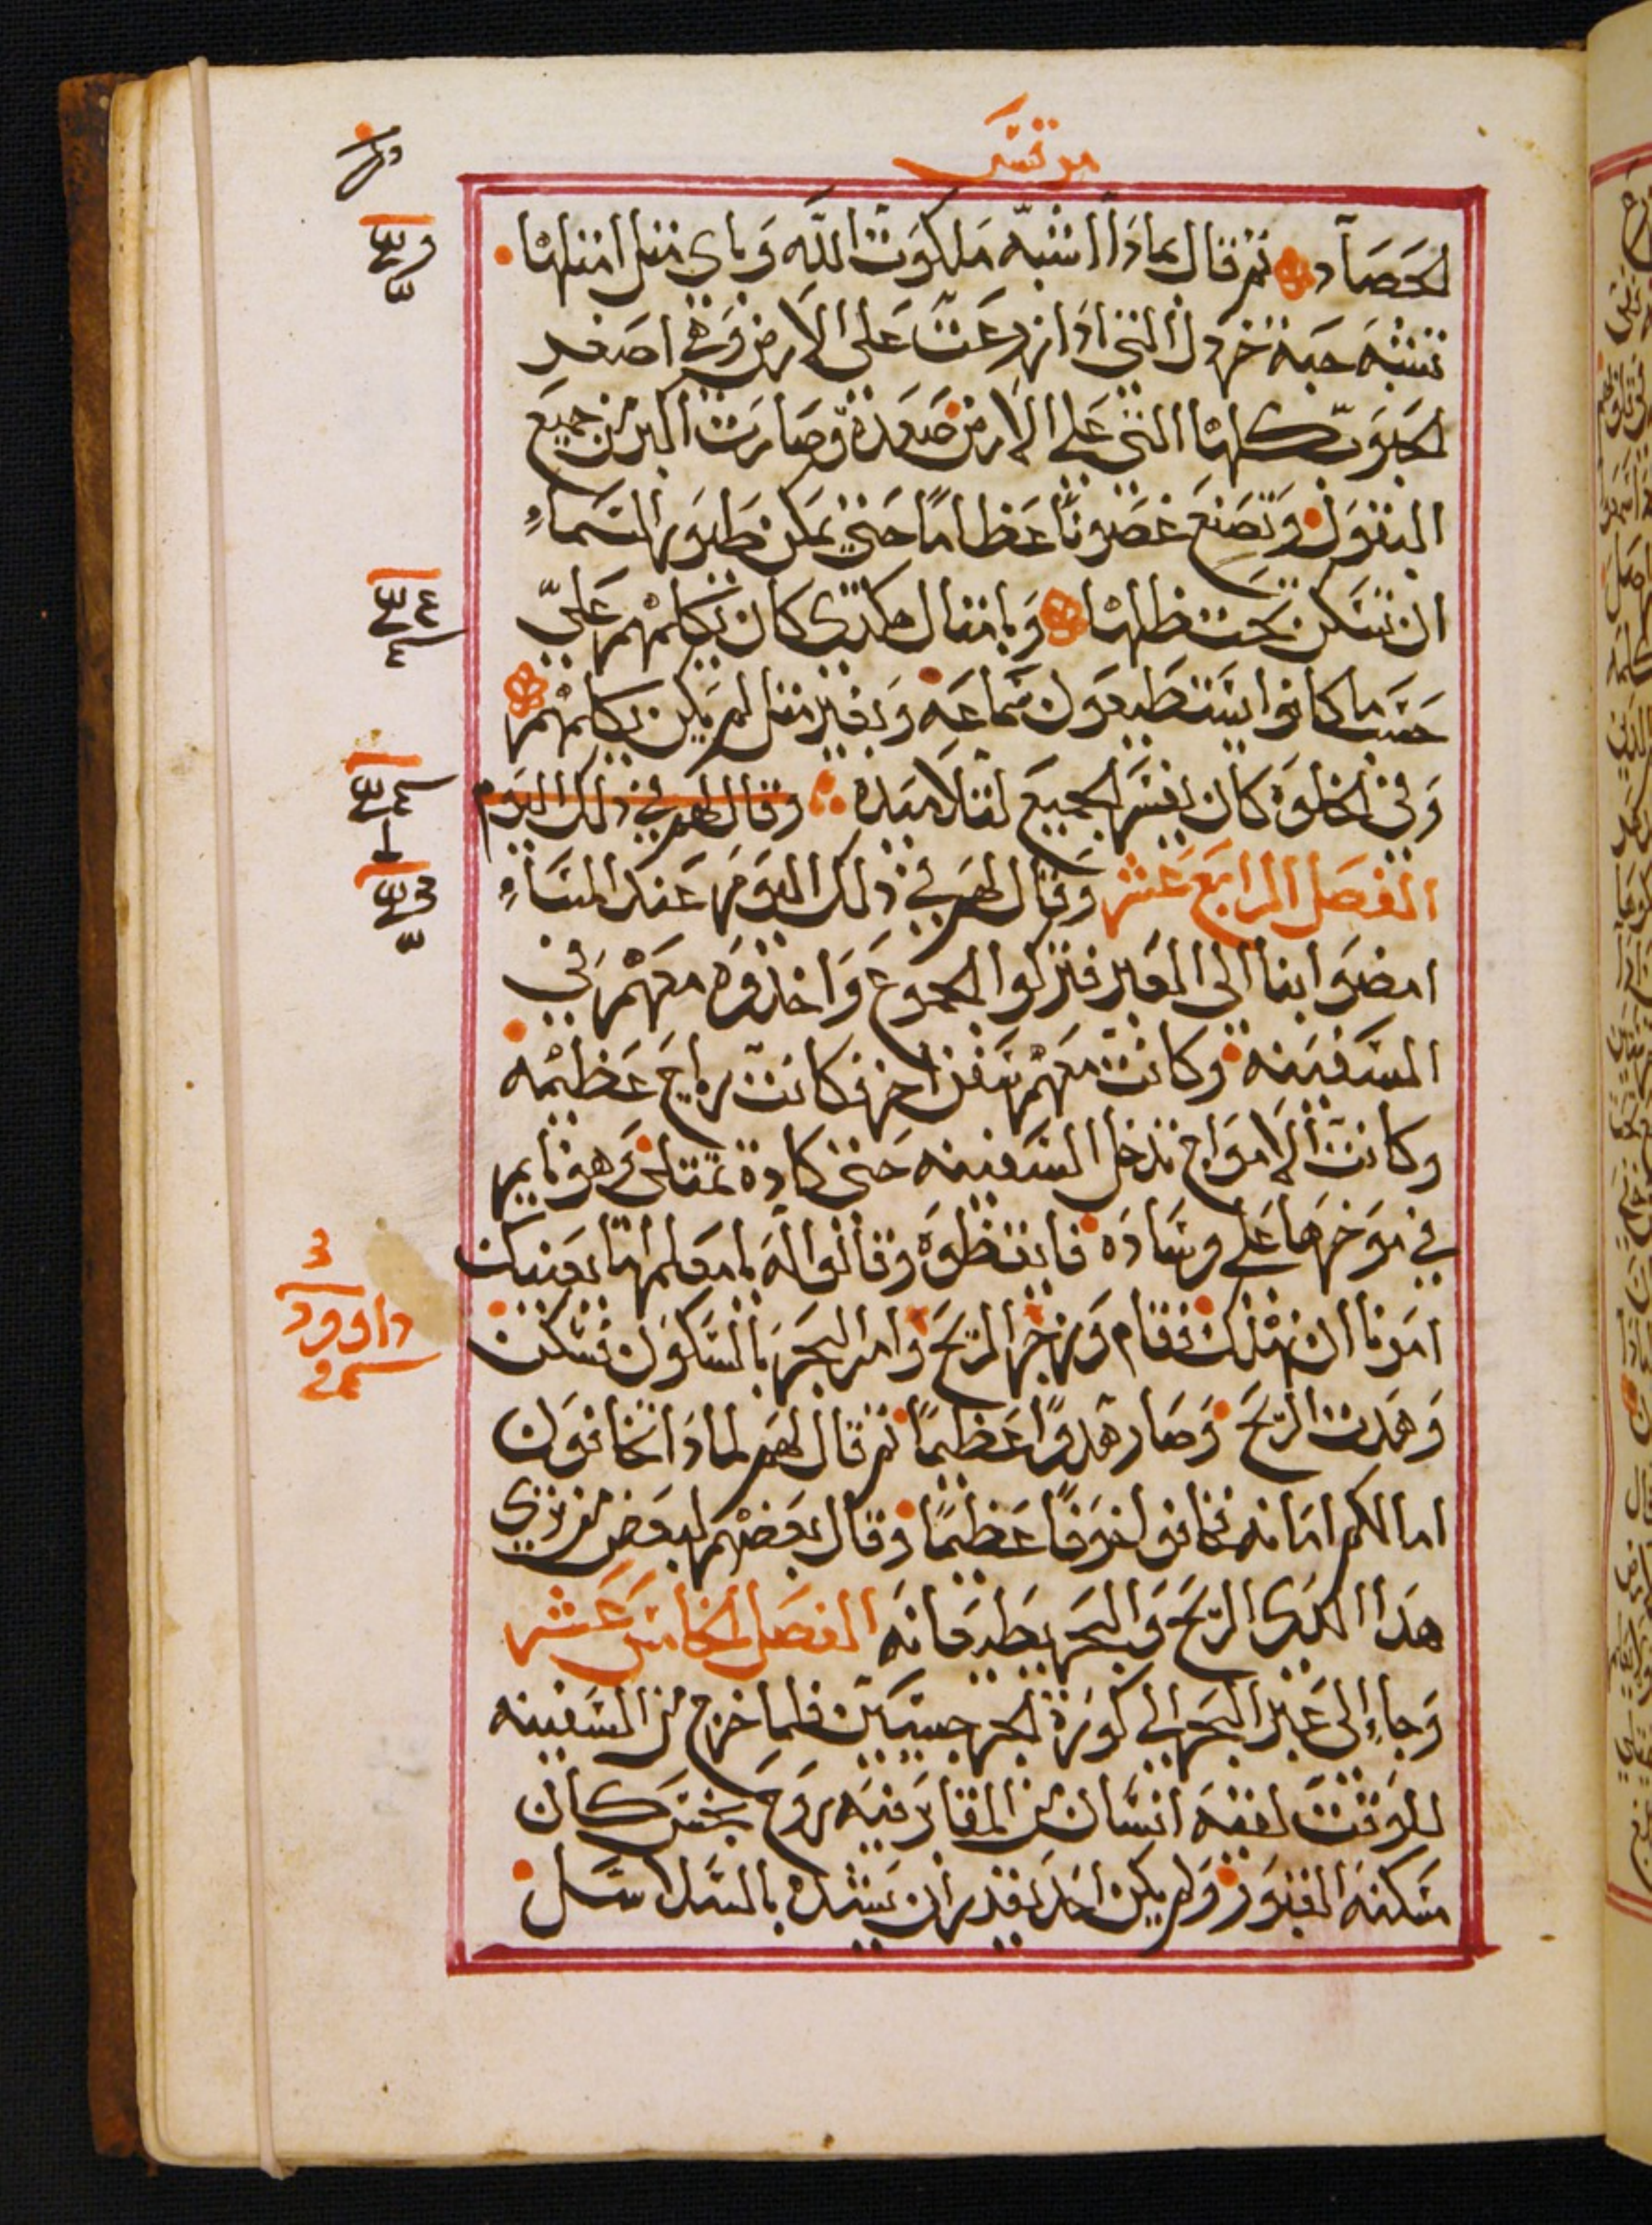 مرقس
الحصاد ثم قال بماذا اشبه ملكوت الله وباى مثل امثلها
تشبه حبة خردل التي اذا زرعت على الارض وهي اصغر
الحبوب كلها التي على الارض صعدة وصارت اكبر من جميع
البقول وتصنع غصونًا عظامًا حتي يمكن طيور السماء
ان تسكن تحت ظلها وبامثال هكذى كان يكلمهم علي
حسب ما كانوا يستطيعون سماعه وبغير مثل لم يكن يكلمهم
وفي الخلوة كان يفسر الجميع لتلاميذه وقال لهم في ذلك اليوم
الفصل الرابع عشر وقال لهم في ذلك اليوم عند المساء
امضوا بنا الى العبر فتركوا الجموع واخذوه معهم في
السفينه وكانت معهم سفن اخر فكانت رياح عظيمه
وكانت الامواج تدخل السفينه حتي كادة تمتلى وهو نايم
في موخرها على وسادة فايقظوه وقالوا له يا معلم اما يعنيك
امرنا ان نهلك فقام وزجر الريح وامر البحر بالسكون فسكن
وهدت الريح وصار هدوًا عظيمًا ثم قال لهم لماذا تخافون
اما لكم امانه فخافوا خوفًا عظيمًا وقال بعضهم لبعض من ترى
هذا الذى الريح والبحر يطيعانه الفصل الخامس عشر
وجاء الى عبر البحر الى كورة الجرجسيين فلما خرج من السفينه
للوقت لقيه انسان من المقابر فيه روح نجس كان
مسكنه القبور ولم يكن احد يقدر ان يشده بالسلاسل
داوود